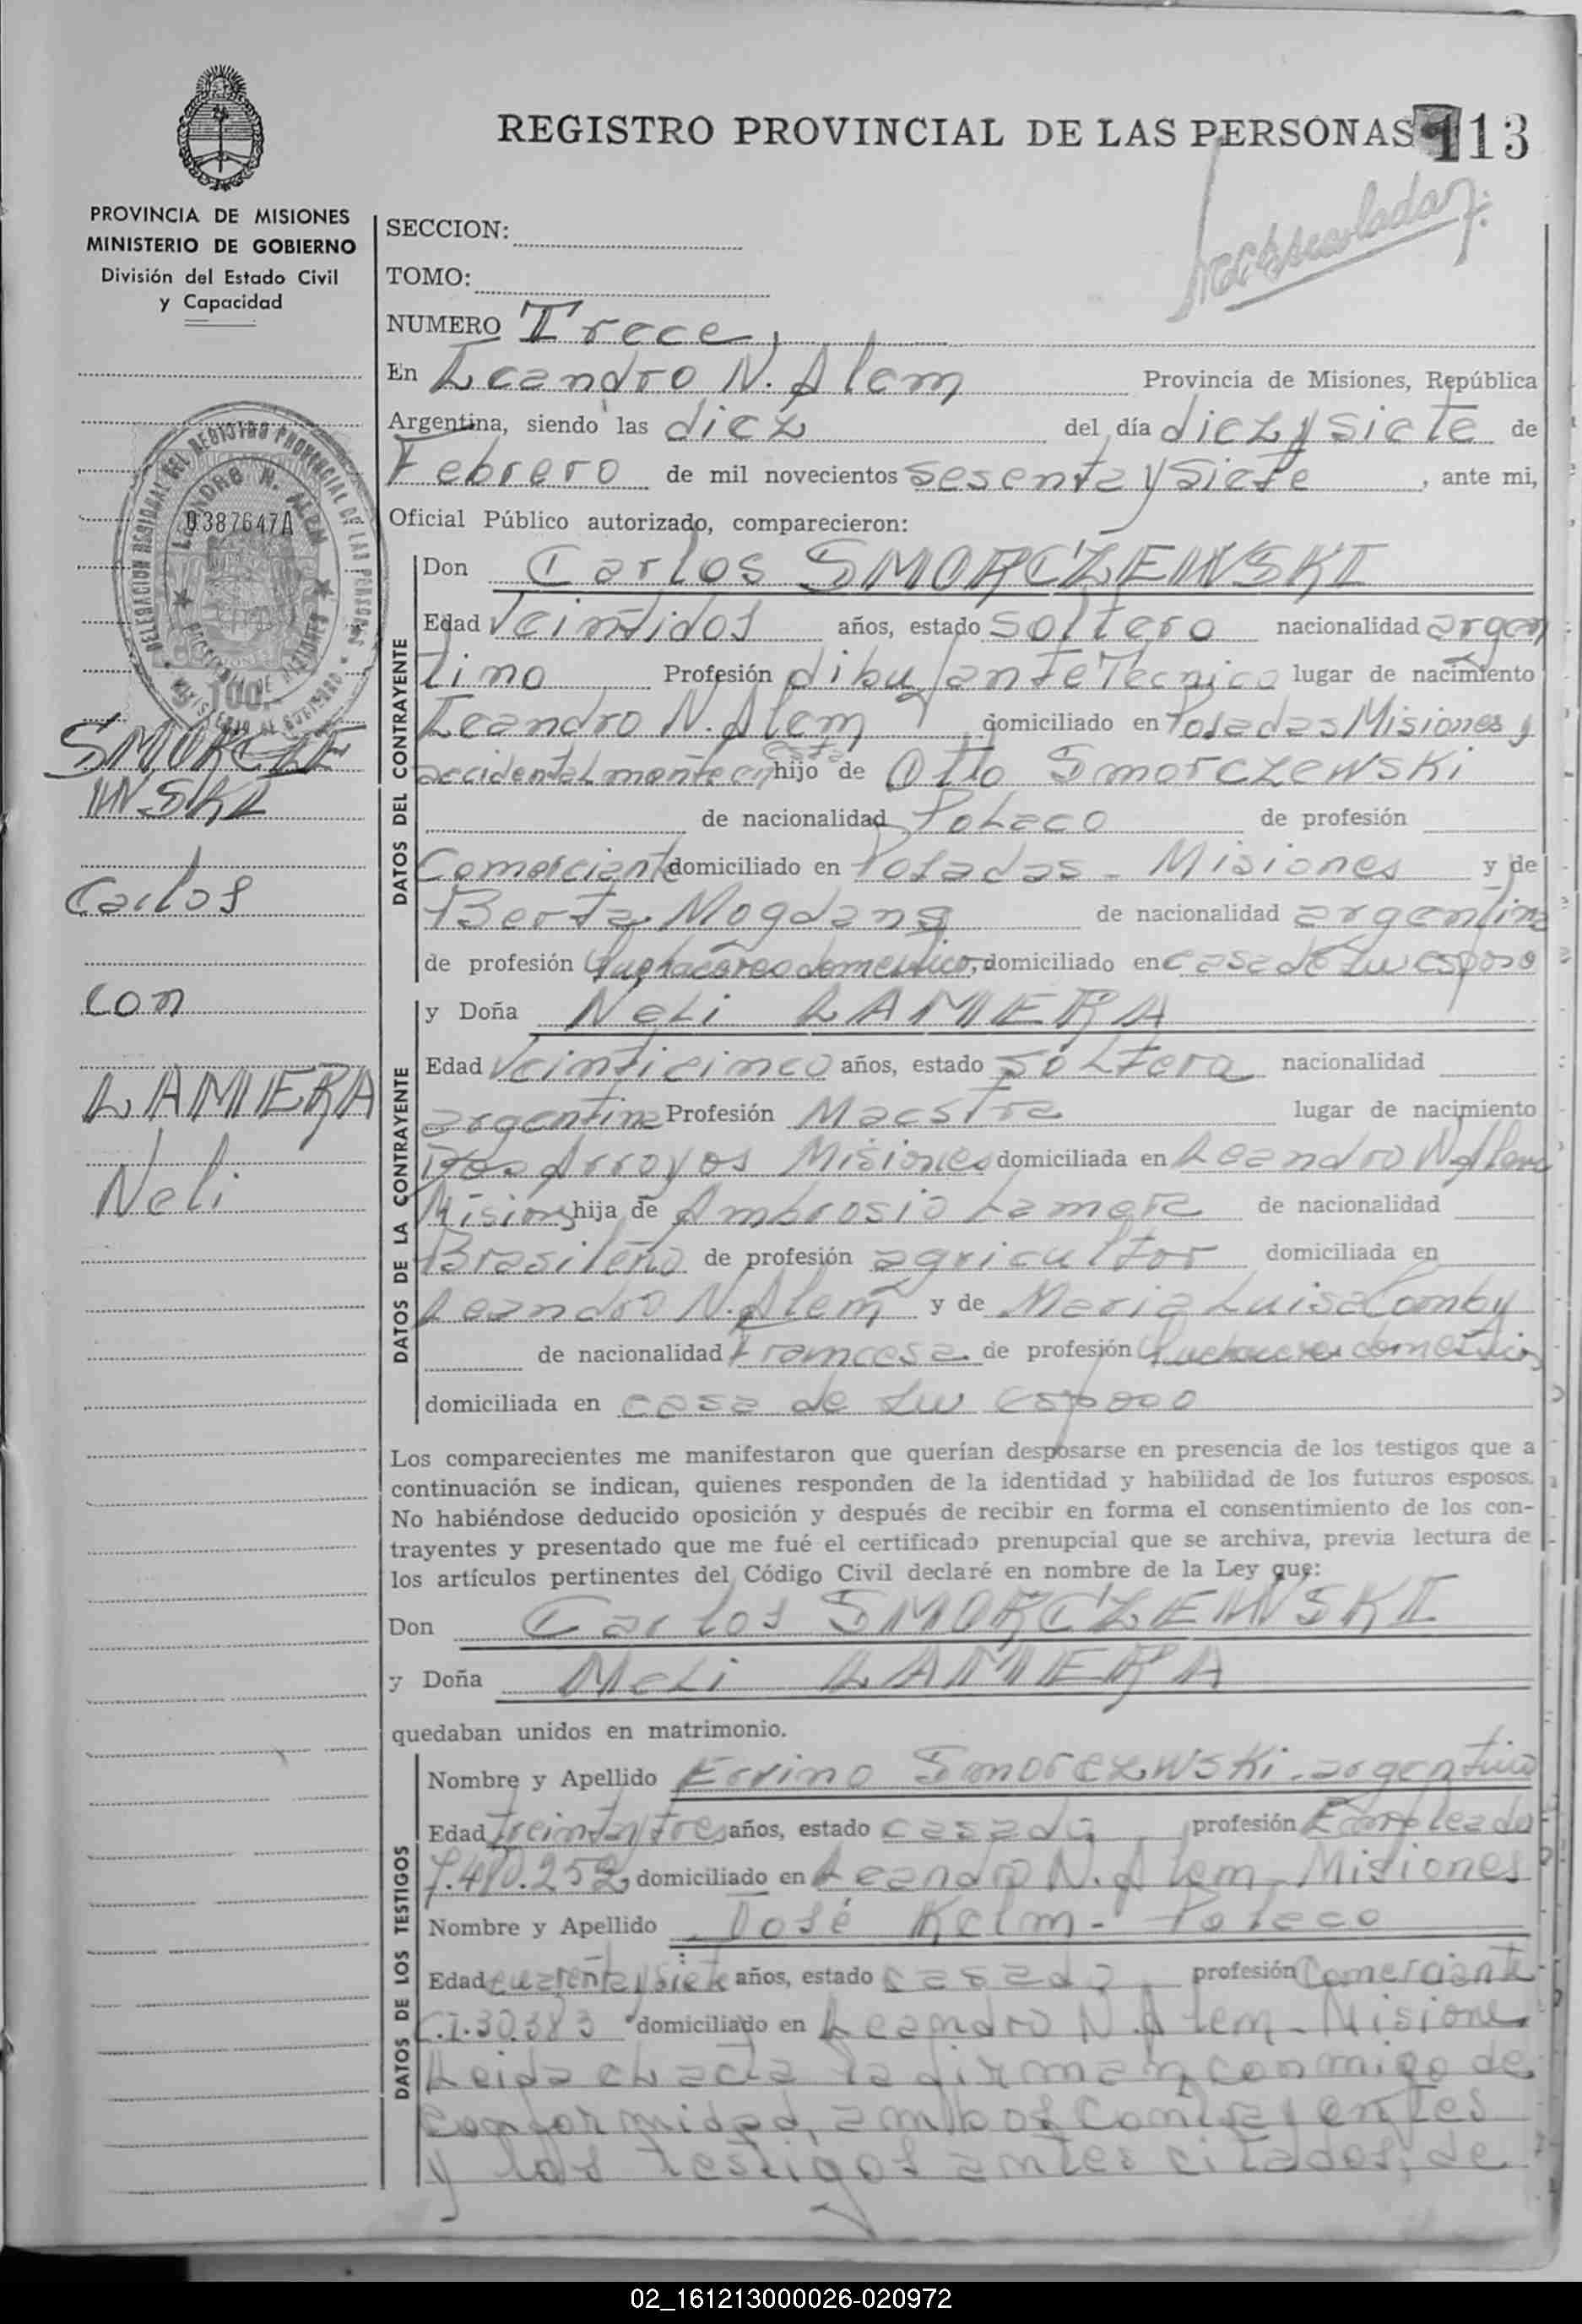 REGISTRO PROVINCIAL DE LAS PERSONAS 113
PROVINCIA DE MISIONES
MINISTERIO DE GOBIERNO
División del Estado Civil
y Capacidad
SECCION:
TOMO:
NUMERO Trece,
En Leandro N. Alem Provincia de Misiones, República
Argentina, siendo las diez del día diez y siete de
Febrero de mil novecientos sesenta y siete, ante mi,
Oficial Público autorizado, comparecieron:
DELEGACION REGIONAL DEL REGISTRO PROVINCIAL DE LAS PERSONAS
LEANDRO N. ALEM
0387647A
100.-
SMORCZE
WSKI
Carlos
con
LAMERA
Neli
DATOS DEL CONTRAYENTE
Don Carlos SMORCZEWSKI
Edad Veintidos años, estado soltero nacionalidad argen
tino Profesión dibujante Tecnico lugar de nacimiento
Leandro N. Alem domiciliado en Posadas Misiones y
accidentalmente en esta hijo de Otto Smorczewski
de nacionalidad Polaco de profesión
Comerciante domiciliado en Posadas - Misiones y de
Berta Mogdans de nacionalidad argentina
de profesión Quehaceres domestico, domiciliado en casa de su esposo
DATOS DE LA CONTRAYENTE
y Doña Neli LAMERA
Edad Veinticinco años, estado soltera nacionalidad
argentina Profesión Maestra lugar de nacimiento
Dos Arroyos Misiones domiciliada en Leandro N. Alem
Misiones hija de Ambrosio Lamera de nacionalidad
Brasileño de profesión agricultor domiciliada en
Leandro N. Alem y de Maria Luisa Comby
de nacionalidad Francesa de profesión Quehaceres domesticos
domiciliada en casa de su esposo
Los comparecientes me manifestaron que querían desposarse en presencia de los testigos que a
continuación se indican, quienes responden de la identidad y habilidad de los futuros esposos.
No habiéndose deducido oposición y después de recibir en forma el consentimiento de los con-
trayentes y presentado que me fué el certificado prenupcial que se archiva, previa lectura de
los artículos pertinentes del Código Civil declaré en nombre de la Ley que:
Don Carlos SMORCZEWSKI
y Doña Neli LAMERA
quedaban unidos en matrimonio.
DATOS DE LOS TESTIGOS
Nombre y Apellido Ervino Smorczewski - argentino
Edad treinta y tres años, estado casado profesión Empleado
7.480.252 domiciliado en Leandro N. Alem - Misiones
Nombre y Apellido José Kelm - Polaco
Edad cuarenta y siete años, estado casado profesión Comerciante
C.I. 30.383 domiciliado en Leandro N. Alem - Misiones
Leida el acta la firman conmigo de
conformidad, ambos contrayentes
y los testigos antes citados, de
02_161213000026-020972